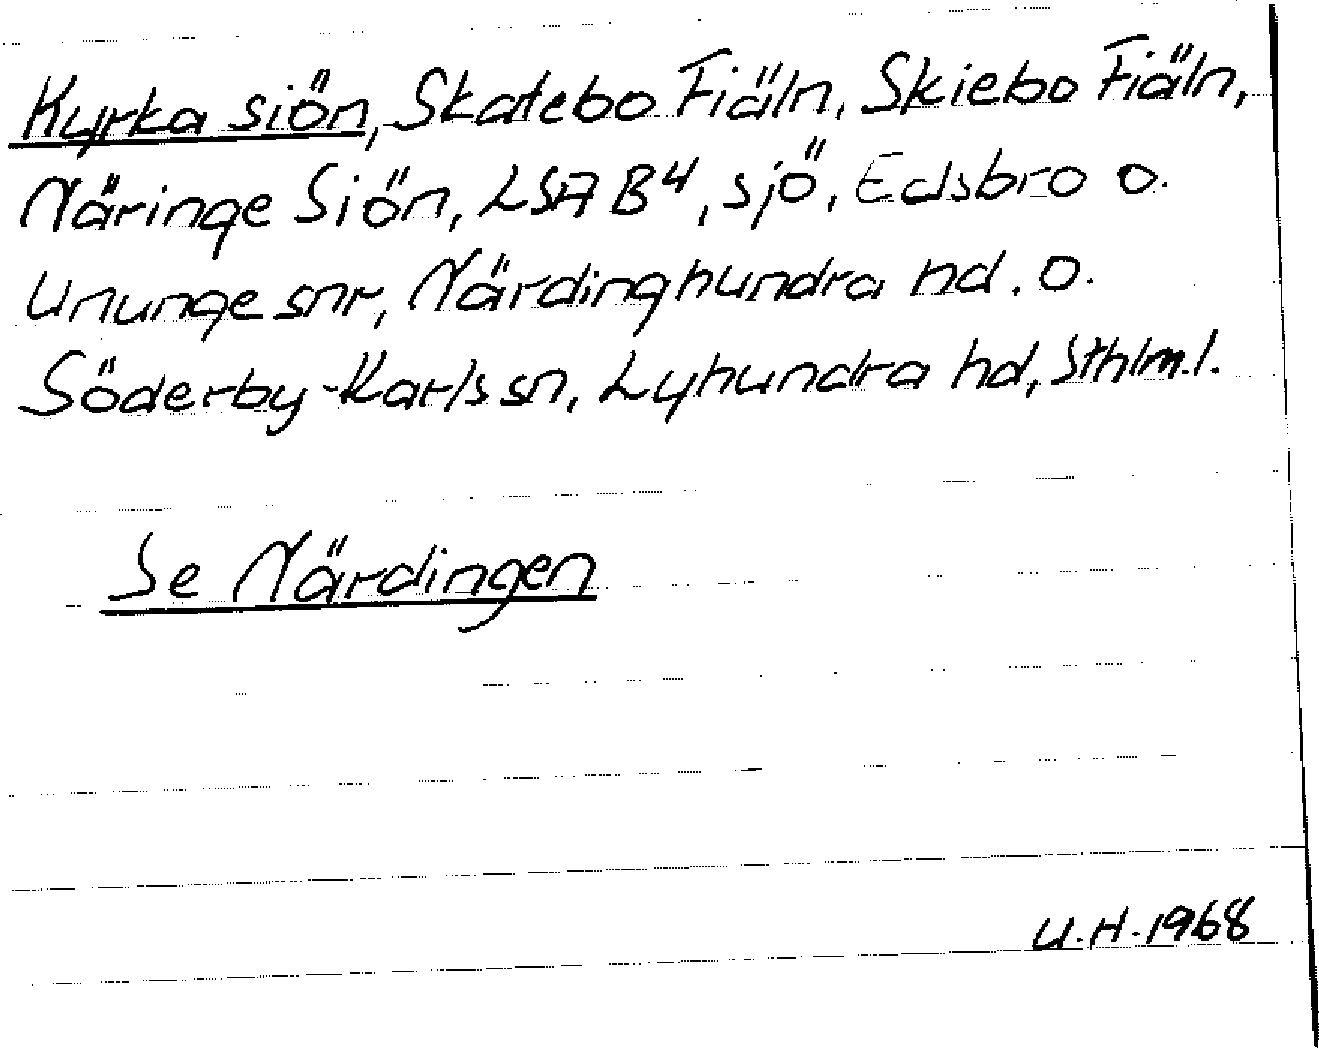 Kyrka siön, Skatebo Fiäln, Skiebo Fiäln,
Näringe Siön, LSA B4, sjö, Edsbro o.
Ununge snr, Närdinghundra hd. o.
Söderby-Karls sn, Lyhundra hd, Sthlm.l.
Se Närdingen
U.H. 1968